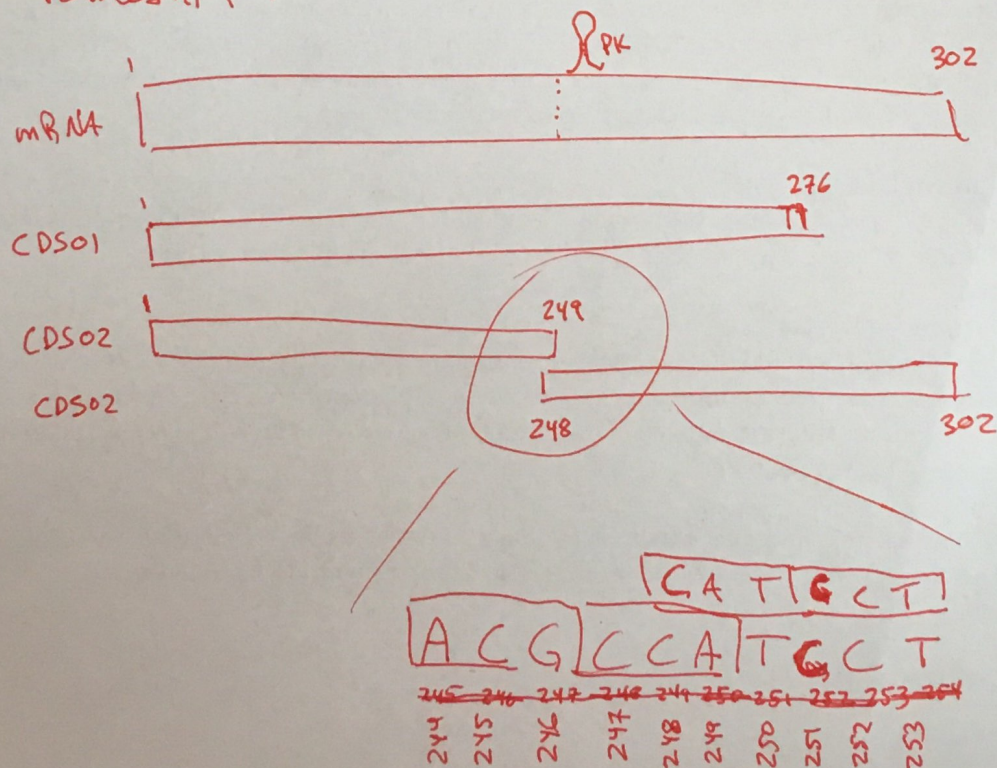 PK
1 302
mRNA
1 276
CDS01
1 249
CDS02
CDS02
248 302
C A T G C T
A C G C C A T G C T
245 246 247 248 249 250 251 252 253 254
244 245 246 247 248 249 250 251 252 253